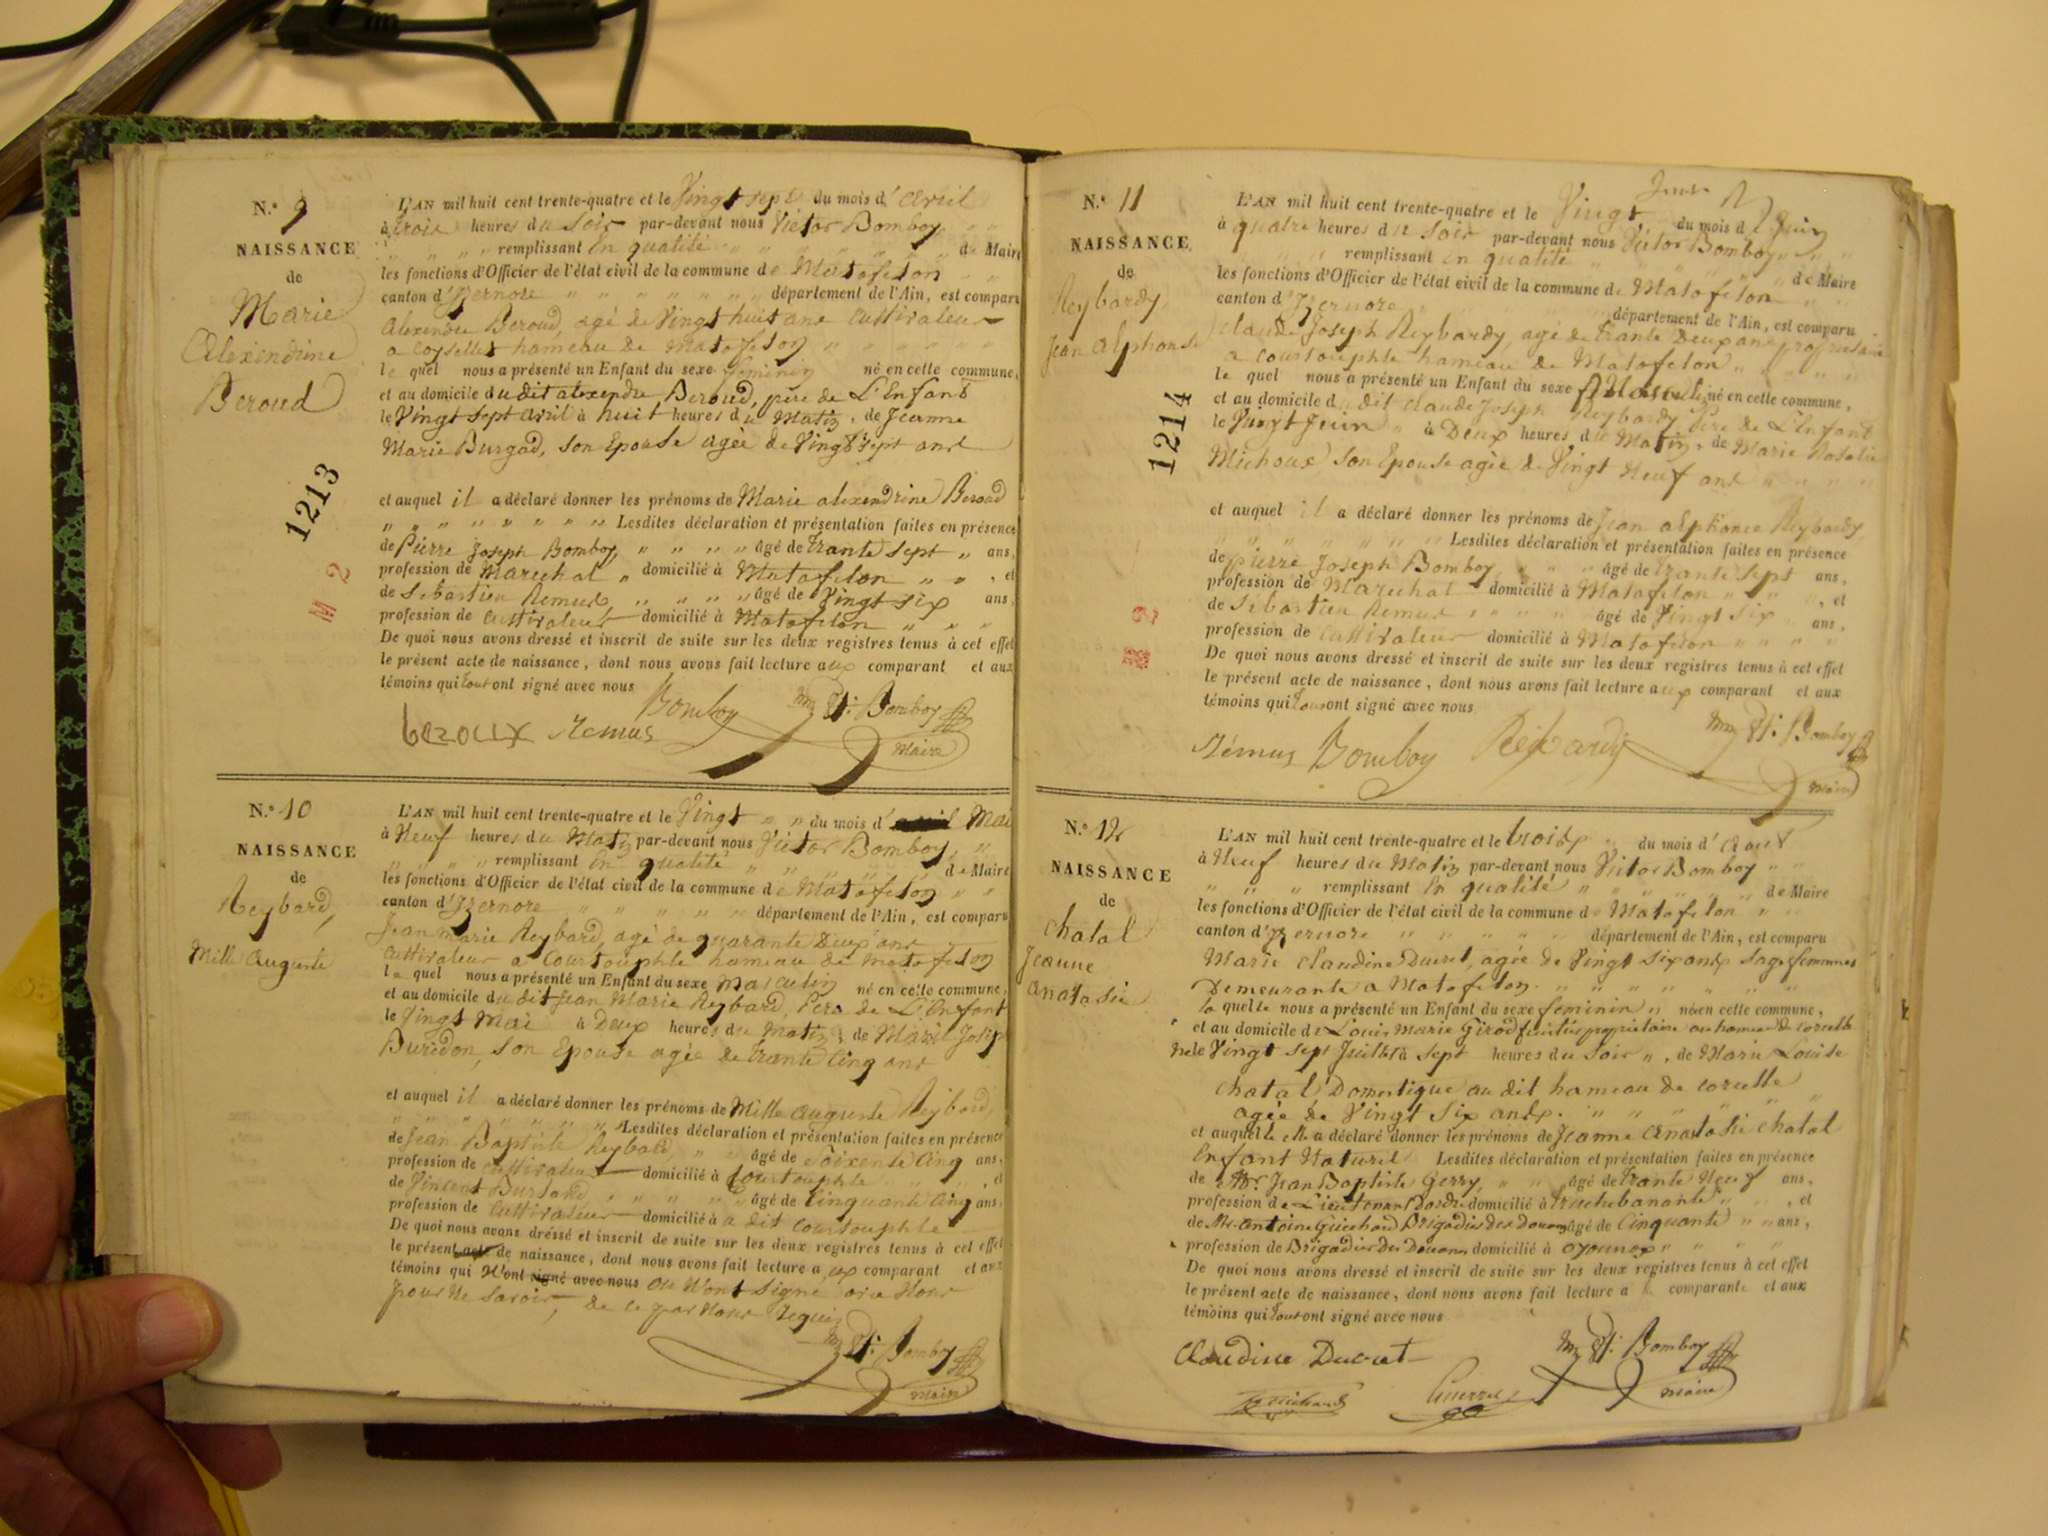 N.° 9
NAISSANCE
de
Marie
Alexendrine
Beroud
1213
M 2
L'AN mil huit cent trente-quatre et le Vingt sept du mois d' avril
à trois heures du Soir par-devant nous Victor Bomboy
remplissant en qualité de Maire
les fonctions d'Officier de l'état civil de la commune de Matafelon
canton d'Izernore département de l'Ain, est comparu
Alexendre Beroud, agé de Vingt huit ans Cultivateur
a Coysellet hameau de Matafelon
le quel nous a présenté un Enfant du sexe feminin né en cette commune,
et au domicile du dit alexendre Beroud, père de L'Enfant
le Vingt Sept avril à huit heures du Matin, de Jeanne
Marie Burgad, son Epouse agée de Vingt Sept ans
et auquel il a déclaré donner les prénoms de Marie alexendrine Beroud
Lesdites déclaration et présentation faites en présence
de Pierre Joseph Bomboy âgé de trante sept ans,
profession de Marechal domicilié à Matafelon, et
de Sébastien Remus âgé de Vingt six ans,
profession de Cultivateur domicilié à Matafelon
De quoi nous avons dressé et inscrit de suite sur les deux registres tenus à cet effet
le présent acte de naissance, dont nous avons fait lecture aux comparant et aux
témoins qui tout ont signé avec nous
Bomboy Bomboy
beroux remus maire
N.° 10
NAISSANCE
de
Reybard,
Mille Auguste
L'AN mil huit cent trente-quatre et le Vingt du mois d' Mai
à Neuf heures du Matin par-devant nous Victor Bomboy,
remplissant en qualité de Maire
les fonctions d'Officier de l'état civil de la commune de Matafelon
canton d'Izernore département de l'Ain, est comparu
Jean marie Reybard, agé de quarante Deux ans
Cultivateur a Courtouphle hameau de Matafelon
le quel nous a présenté un Enfant du sexe Masculin né en cette commune,
et au domicile du dit Jean Marie Reybard, Pere de L'Enfant
le Vingt Mai à Deux heures du Matin, de Marie Josèp
Buredon, Son Epouse agée de trante Cinq ans
et auquel il a déclaré donner les prénoms de Mille auguste Reybard,
Lesdites déclaration et présentation faites en présence
de Jean Baptiste Reybard, âgé de Soixente Cinq ans,
profession de Cultivateur domicilié à Courtouphle, et
de Vincent Burland, âgé de Cinquante Cinq ans,
profession de Cultivateur domicilié à a dit Courtouphle
De quoi nous avons dressé et inscrit de suite sur les deux registres tenus à cet effet
le présent acte de naissance, dont nous avons fait lecture aux comparant et aux
témoins qui N'ont signé avec nous ou N'ont Signé avec Nous
pour Ne Savoir, de ce par Nous Requis
Bomboy
maire
N.° 11
NAISSANCE
de
Reybardy,
Jean Alphonse
1214
M 2
L'AN mil huit cent trente-quatre et le Vingt du mois de Juin
à quatre heures du Soir par-devant nous Victor Bomboy
remplissant en qualité de Maire
les fonctions d'Officier de l'état civil de la commune de Matafelon
canton d'Izernore département de l'Ain, est comparu
Claude Joseph Reybardy, agé de trante Deux ans propriétaire
a Courtouphle hameau de Matafelon
le quel nous a présenté un Enfant du sexe Masculin né en cette commune,
et au domicile du dit Claude Joseph Reybardy Père de L'Enfant
le Vingt Juin à Deux heures du Matin, de Marie Natalie
Michoux Son Epouse agée de Vingt Neuf ans
et auquel il a déclaré donner les prénoms de Jean alphonce Reybardy
Lesdites déclaration et présentation faites en présence
de pierre Joseph Bomboy, âgé de trante Sept ans,
profession de Marechal domicilié à Matafelon, et
de Sébastien Remus âgé de Vingt Six ans,
profession de Cultivateur domicilié à Matafelon
De quoi nous avons dressé et inscrit de suite sur les deux registres tenus à cet effet
le présent acte de naissance, dont nous avons fait lecture aux comparant et aux
témoins qui tous ont signé avec nous
Rémus Bomboy Reybardy Bomboy
maire
N.° 12
NAISSANCE
de
Chatal
Jeanne
Anatasie
L'AN mil huit cent trente-quatre et le trois du mois d' Aout
à Neuf heures du Matin par-devant nous Victor Bomboy
remplissant en qualité de Maire
les fonctions d'Officier de l'état civil de la commune de Matafelon
canton d'Izernore département de l'Ain, est comparu
Marie Claudine Ducret, agée de Vingt Six ans Sage femme
Demeurante a Matafelon
la quelle nous a présenté un Enfant du sexe feminin né en cette commune,
et au domicile de Louis Marie Girod propriétaire au hameau de Corcelle
Né le Vingt sept Juillet à sept heures du Soir, de Marie Louise
Chatal Domestique au dit hameau de Corcelle
agée de Vingt Six ans.
et auquel elle a déclaré donner les prénoms de Jeanne Anatasie Chatal
Enfant Naturel Lesdites déclaration et présentation faites en présence
de Mr. Jean Baptiste Gerry, âgé de trante Neuf ans,
profession de Lieutenant domicilié à, et
de Mr. Antoine Guichard Brigadier des Douanes âgé de Cinquante ans,
profession de Brigadier des Douanes domicilié à oyonnax
De quoi nous avons dressé et inscrit de suite sur les deux registres tenus à cet effet
le présent acte de naissance, dont nous avons fait lecture a la comparante et aux
témoins qui tout ont signé avec nous
Claudine Ducret Bomboy
maire